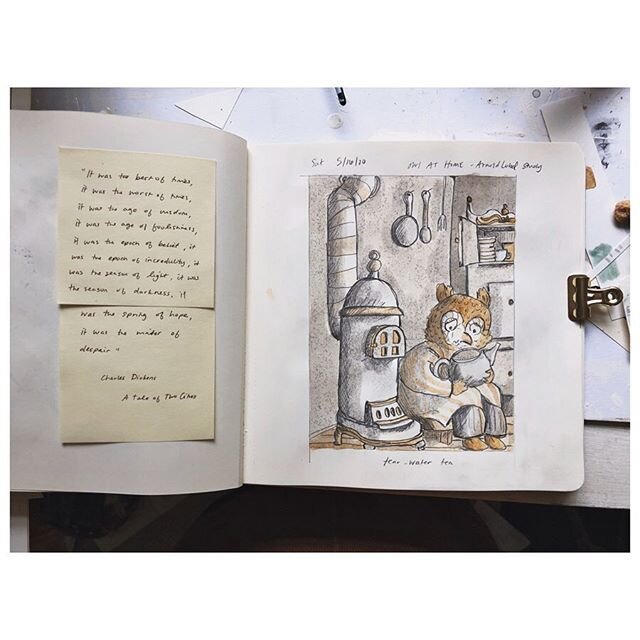 "It was the best of times,
it was the worst of times,
it was the age of wisdom,
it was the age of foolishness,
it was the epoch of belief, it
was the epoch of incredulity, it
was the season of light, it was
the season of darkness, it
was the spring of hope,
it was the winter of
despair"
Charles Dickens
A tale of Two Cities
Sat 5/30/20
Owl AT HOME - Arnold Lobel Study
tear-water tea